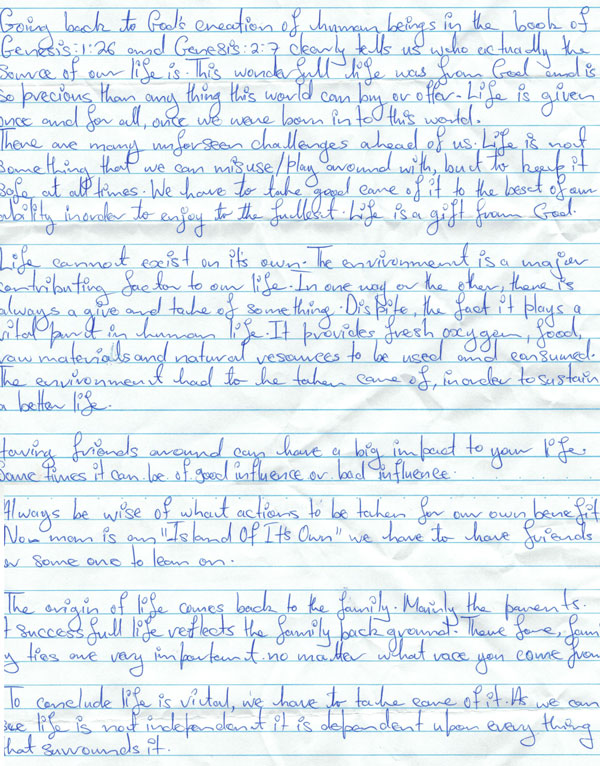 Going back to God's creation of human beings in the book of
Genesis:1:26 and Genesis:2:7 clearly tells us who actually the
source of our life is. This wonderfull life was from God and is
so precious than any thing this world can buy or offer. Life is given
once and for all, once we were born in to this world.
There are many unforseen challenges ahead of us. Life is not
something that we can misuse/play around with, but to keep it
safe at all times. We have to take good care of it to the besct of our
ability inorder to enjoy to the fullest. Life is a gift from God.
Life cannot exist on its own. The environment is a major
contributing factor to our life. In one way or the other, there is
always a give and take of something. Dispite, the fact it plays a
vital part in human life. It provides fresh oxygen, food,
raw materials and natural resources to be used and consumed.
The environment had to be taken care of, inorder to sustain
a better life.
Having friends around can have a big impact to your life
Some times it can be of good influence or bad influence.
Always be wise of what actions to be taken for our own benefit
No man is an "Island Of Its Own" we have to have friends
or some one to lean on.
The origin of life comes back to the family. Mainly the parents.
t successfull life reflects the family back ground. There fore, fami
y ties are very important no matter what race you come from
To conclude life is victal, we have to take care of it. As we can
see life is not independant it is dependent upon every thing
that surrounds it.